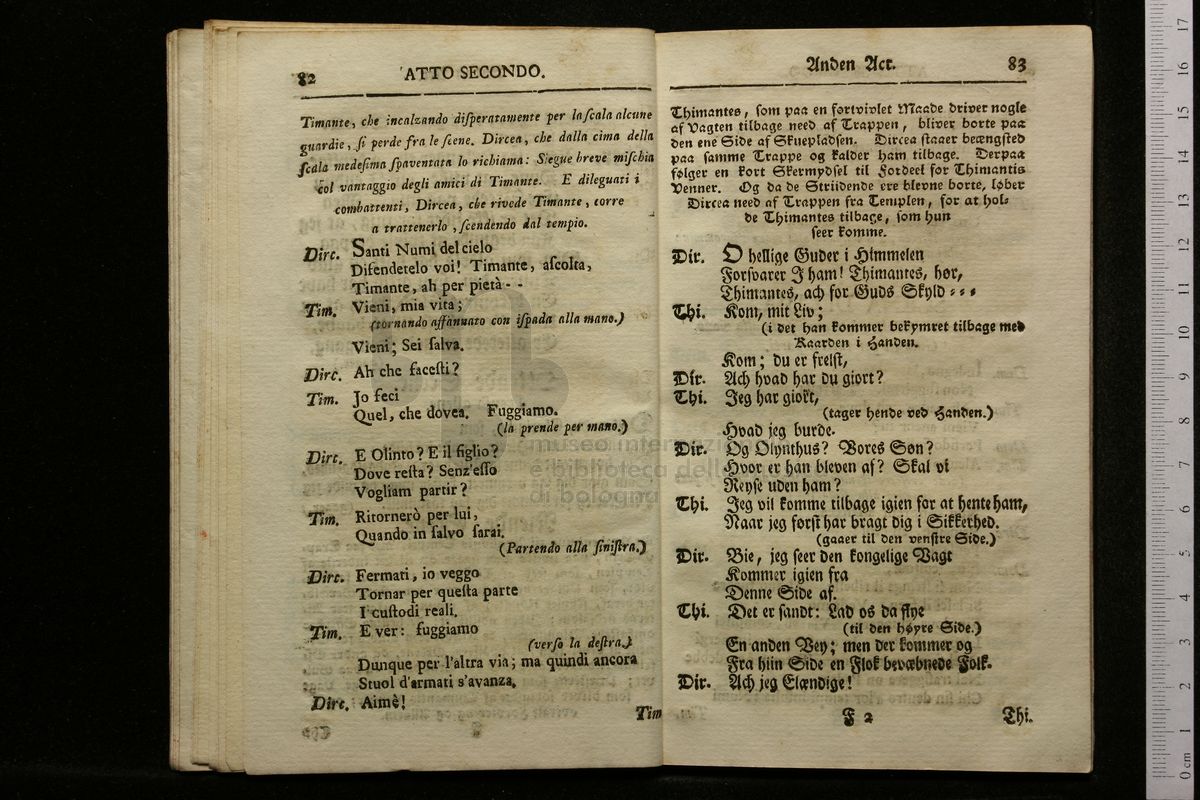 82 ATTO SECONDO.
Timante, che incalzando disperatamente per la scala alcune
guardie, si perde fra le scene. Dircea, che dalla cima della
scala medesima spaventata lo richiama: Siegue breve mischia
col vantaggio degli amici di Timante. E dileguati i
combattenti, Dircea, che rivede Timante, corre
a trattenerlo, scendendo dal tempio.
Dirc. Santi Numi del cielo
Difendetelo voi! Timante, ascolta,
Timante, ah per pietà - -
Tim. Vieni, mia vita;
(tornando affannato con ispada alla mano.)
Vieni; Sei salva.
Dirc. Ah che facesti?
Tim. Jo feci
Quel, che dovea. Fuggiamo.
(la prende per mano.)
Dirc. E Olinto? E il figlio?
Dove resta? Senz'esso
Vogliam partir?
Tim. Ritornerò per lui,
Quando in salvo sarai.
(Partendo alla sinistra.)
Dirc. Fermati, io veggo
Tornar per questa parte
I custodi reali.
Tim. E ver: fuggiamo
(verso la destra.)
Dunque per l'altra via; ma quindi ancora
Stuol d'armati s'avanza.
Dirc. Aimè!
Tim
Anden Act. 83
Thimantes, som paa en fortvivlet Maade driver nogle
af Vagten tilbage need af Trappen, bliver borte paa
den ene Side af Skuepladsen. Dircea staaer beængsted
paa samme Trappe og kalder ham tilbage. Derpaa
følger en kort Skermydsel til Fordeel for Thimantis
Venner. Og da de Striidende ere blevne borte, løber
Dircea need af Trappen fra Templen, for at hol-
de Thimantes tilbage, som hun
seer komme.
Dir. O hellige Guder i Himmelen
Forsvarer I ham! Thimantes, hør,
Thimantes, ach for Guds Skyld - - -
Thi. Kom, mit Liv;
(i det han kommer bekymret tilbage med
Kaarden i Handen.
Kom; du er frelst,
Dir. Ach hvad har du giort?
Thi. Jeg har giort,
(tager hende ved Handen.)
Hvad jeg burde.
Dir. Og Olynthus? Vores Søn?
Hvor er han bleven af? Skal vi
Reyse uden ham?
Thi. Jeg vil komme tilbage igien for at hente ham,
Naar jeg først har bragt dig i Sikkerhed.
(gaaer til den venstre Side.)
Dir. Bie, jeg seer den kongelige Vagt
Kommer igien fra
Denne Side af.
Thi. Det er sandt: Lad os da flye
(til den høyre Side.)
En anden Vey; men der kommer og
Fra hiin Side en Flok bevæbnede Folk.
Dir. Ach jeg Elændige!
F 2 Thi.
museo internazi
e biblioteca della
di bologna